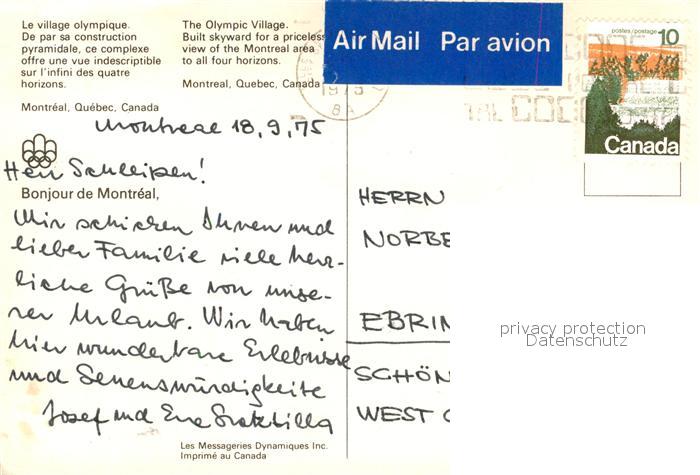 Le village olympique.
De par sa construction
pyramidale, ce complexe
offre une vue indescriptible
sur l'infini des quatre
horizons.
Montréal, Québec, Canada
The Olympic Village.
Built skyward for a priceless
view of the Montreal area
to all four horizons.
Montreal, Quebec, Canada
Air Mail Par avion
1975
8A
postes/postage 10
Canada
Montreal 18.9.75
Bonjour de Montréal,
Wir schicken Ihnen und
lieber Familie viele herz-
liche Grüße von unse-
rer Urlaub. Wir haben
hier wunderbare Erlebnisse
und Senenswürdigkeite
Josef und Eva
HERRN
NORBE
EBRIN
SCHÖN
WEST
privacy protection
Datenschutz
Les Messageries Dynamiques Inc.
Imprimé au Canada